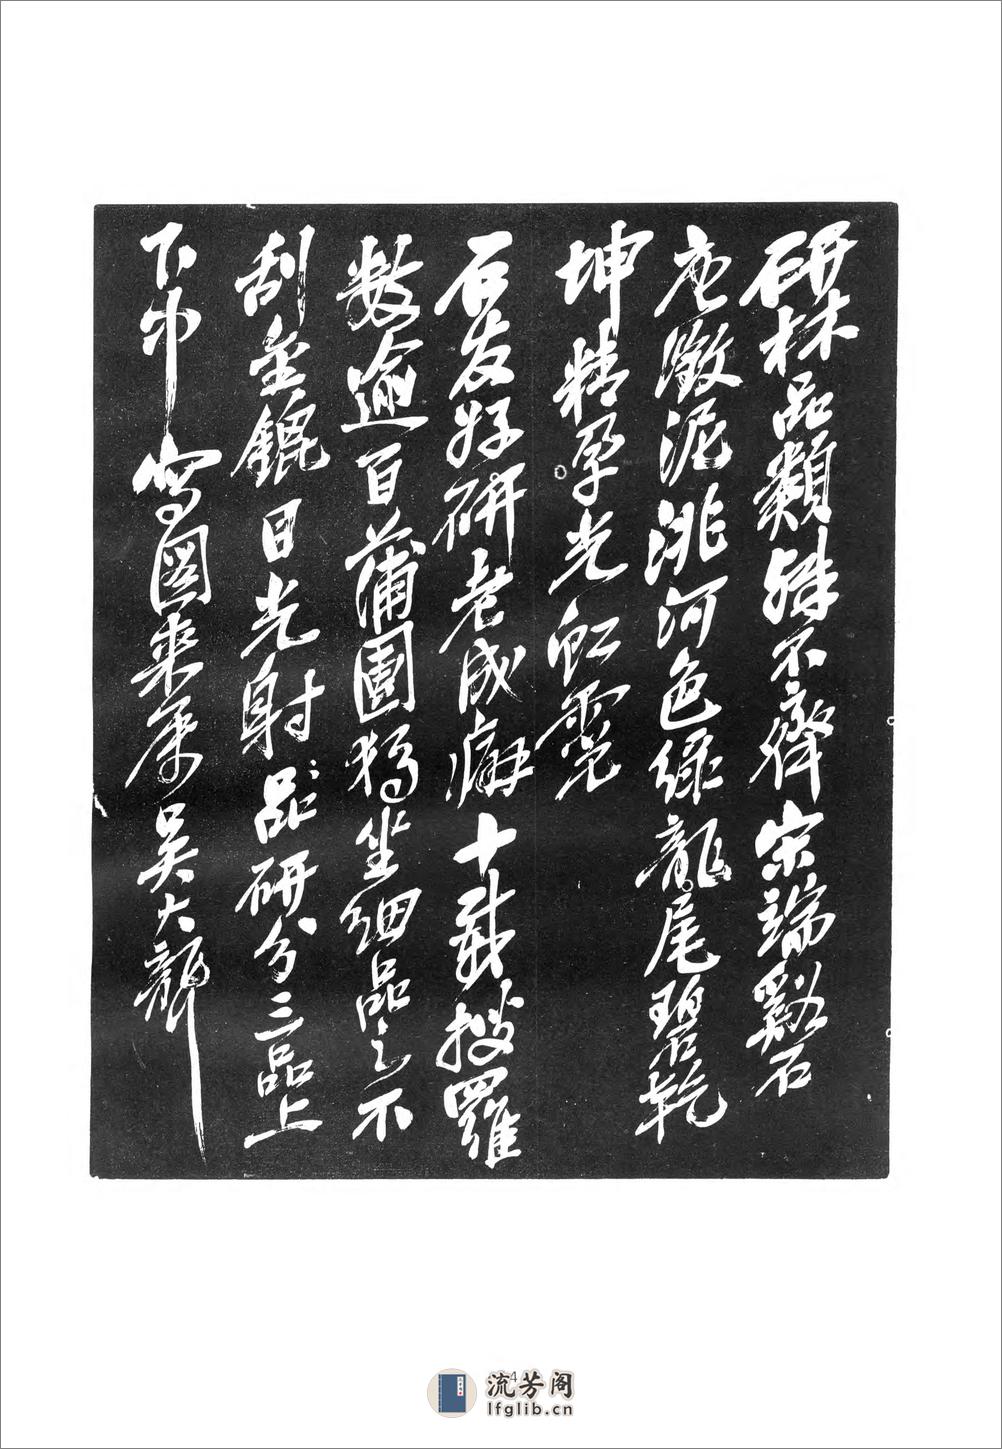 研林品類殊不齊宋端谿石
唐澂泥洮河色綠龍尾碧乾
坤精孕光虹霓
石友好研老成癖十載搜羅
數逾百蒲團獨坐細品之不
刮金鎞目光射品研分三品上
下中 寫圖來 吳大聾
4
流芳阁
lfglib.cn